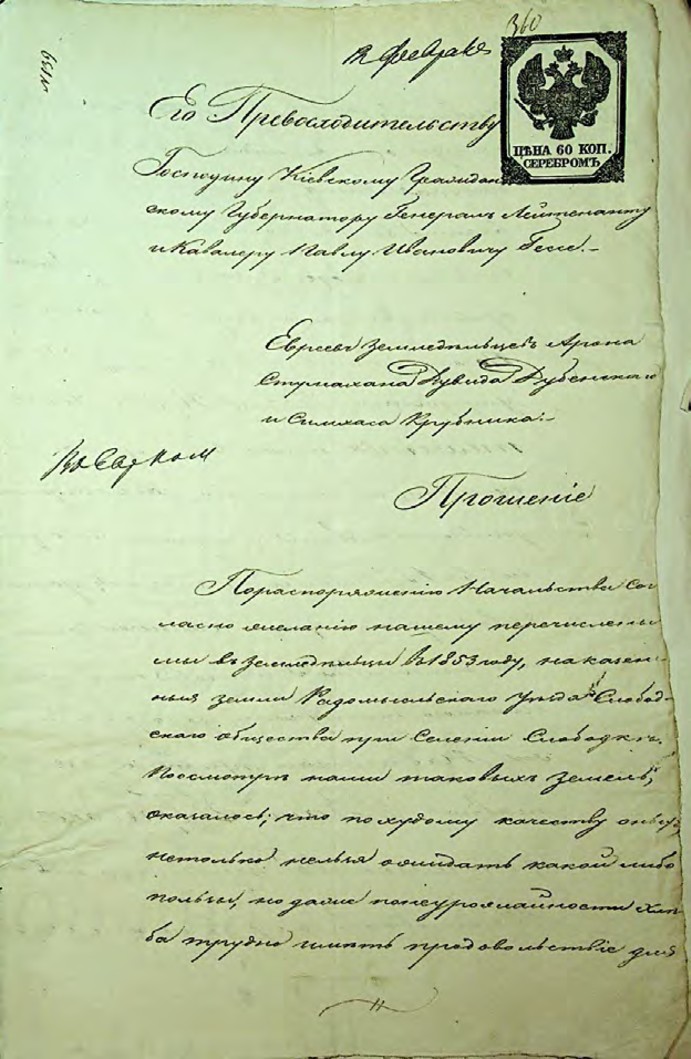 360
12 Февраля
Его Превосходительству
ЦѢНА 60 КОП.
СЕРЕБРОМЪ
Господину Кіевскому Граждан
скому Губернатору Генералъ Лейтенанту
и Кавалеру Павлу Ивановичу Гессе.-
Евреевъ Земледѣльцевъ Арона
Стумахана Дувида Дубенскаго
и Симхаса Крубника:-
Прошеніе
Пораспоряженію Начальства сог
ласно желанію нашему перечислены
мы въ Земледѣльцы въ 1853 году, на казен-
ныя земли Радомысльскаго Уѣзда Слобод-
скаго общества при Селеніи Слободкѣ.
Посмотрѣ нами таковыхъ земель,
оказалось; что похудому качеству оныхъ
нетолько нельзя ожидать какой либо
пользы, но даже понеурожайности хлѣ-
ба трудно имѣть продовольствіе для